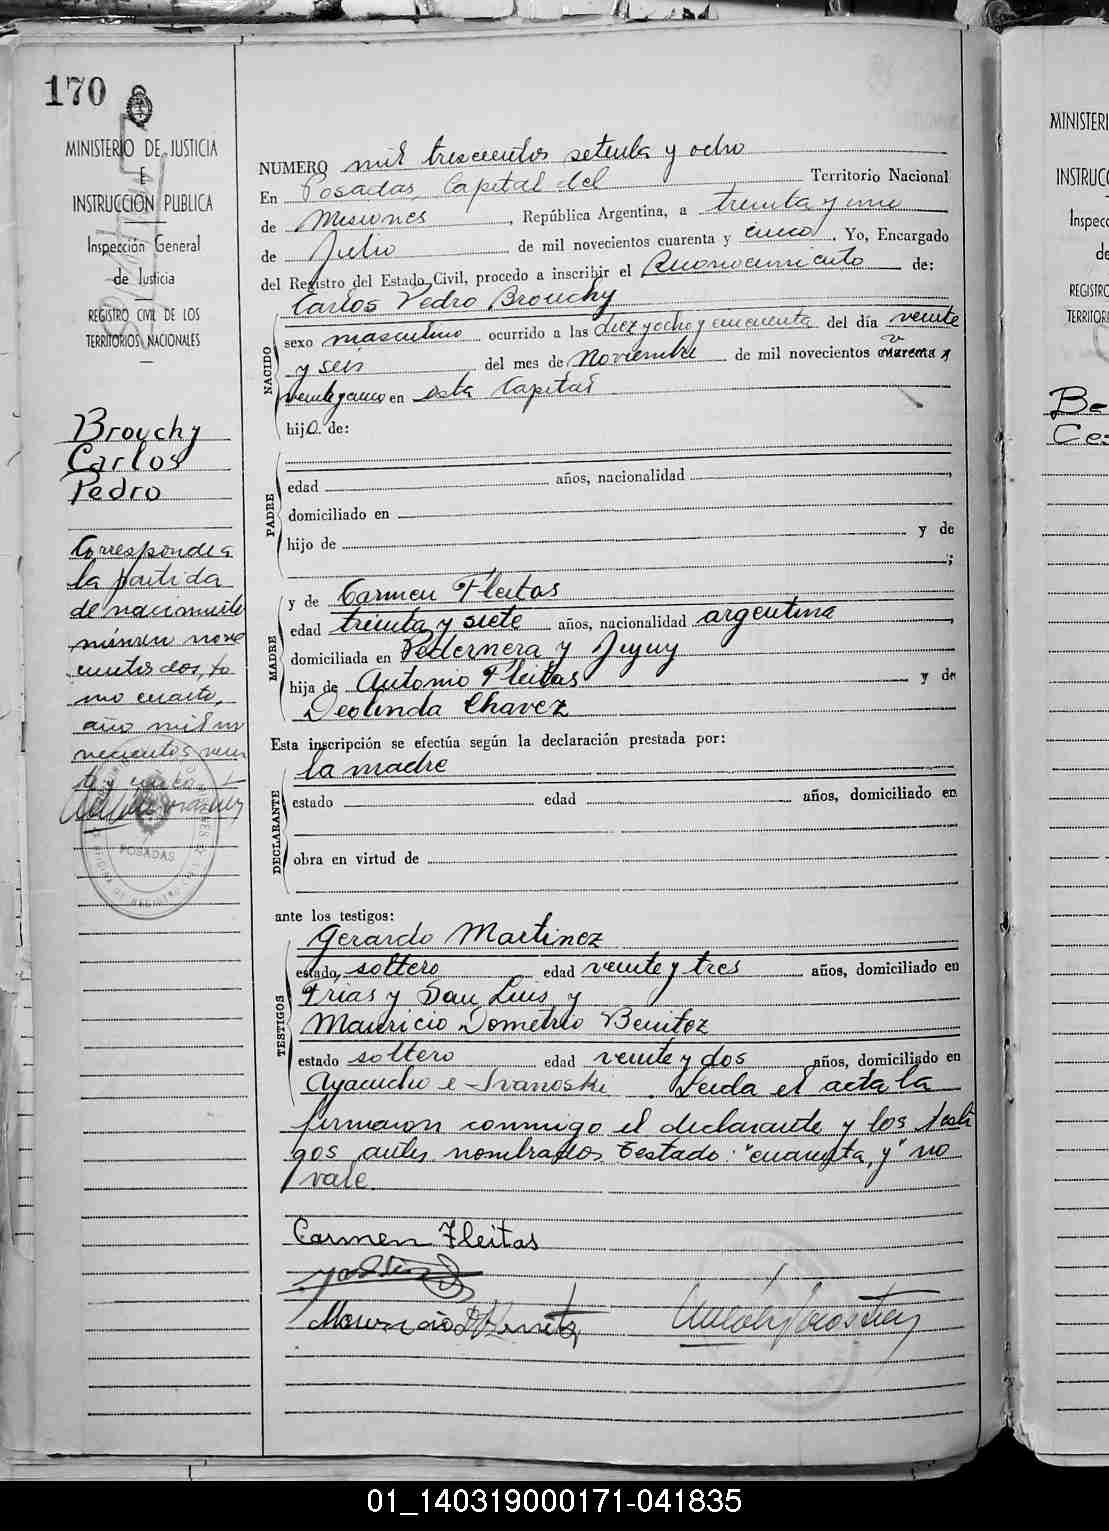 170
MINISTERIO DE JUSTICIA
E
INSTRUCCIÓN PUBLICA
Inspección General
de Justicia
REGISTRO CIVIL DE LOS
TERRITORIOS NACIONALES
Brouchy
Carlos
Pedro
Corresponde a
la partida
de nacimiento
número nove
cientos dos, to
mo cuarto,
año mil no
vecientos vein
POSADAS
NUMERO mil trescientos setenta y ocho
En Posadas, Capital del Territorio Nacional
de Misiones, República Argentina, a treinta y uno
de Julio de mil novecientos cuarenta y cinco. Yo, Encargado
del Registro del Estado Civil, procedo a inscribir el Reconocimiento de:
Carlos Pedro Brouchy
NACIDO
sexo masculino ocurrido a las diez y ocho y cincuenta del día veinte
y seis del mes de Noviembre de mil novecientos cuarenta y
veinte y cinco en esta Capital
hijo de:
PADRE
edad años, nacionalidad ,
domiciliado en
hijo de y de
;
MADRE
y de Carmen Fleitas
edad treinta y siete años, nacionalidad argentina,
domiciliada en Pedernera y Jujuy
hija de Antonio Fleitas y de
Deolinda Chavez
Esta inscripción se efectúa según la declaración prestada por:
DECLARANTE
la madre
estado edad años, domiciliado en
obra en virtud de
ante los testigos:
TESTIGOS
Gerardo Martinez
estado, soltero edad veinte y tres años, domiciliado en
Frias y San Luis y
Mauricio Dometrio Benitez
estado soltero edad veinte y dos años, domiciliado en
Ayacucho e Ivanoski. Leida el acta la
firmaron conmigo el declarante y los testi
gos antes nombrados Testado: "cuarenta, y" no
vale.
Carmen Fleitas
Mauricio D Benitez
MINISTERI
INSTRUCC
Inspecc
de
REGISTRO
TERRITOR
Be
Ces
01_140319000171-041835